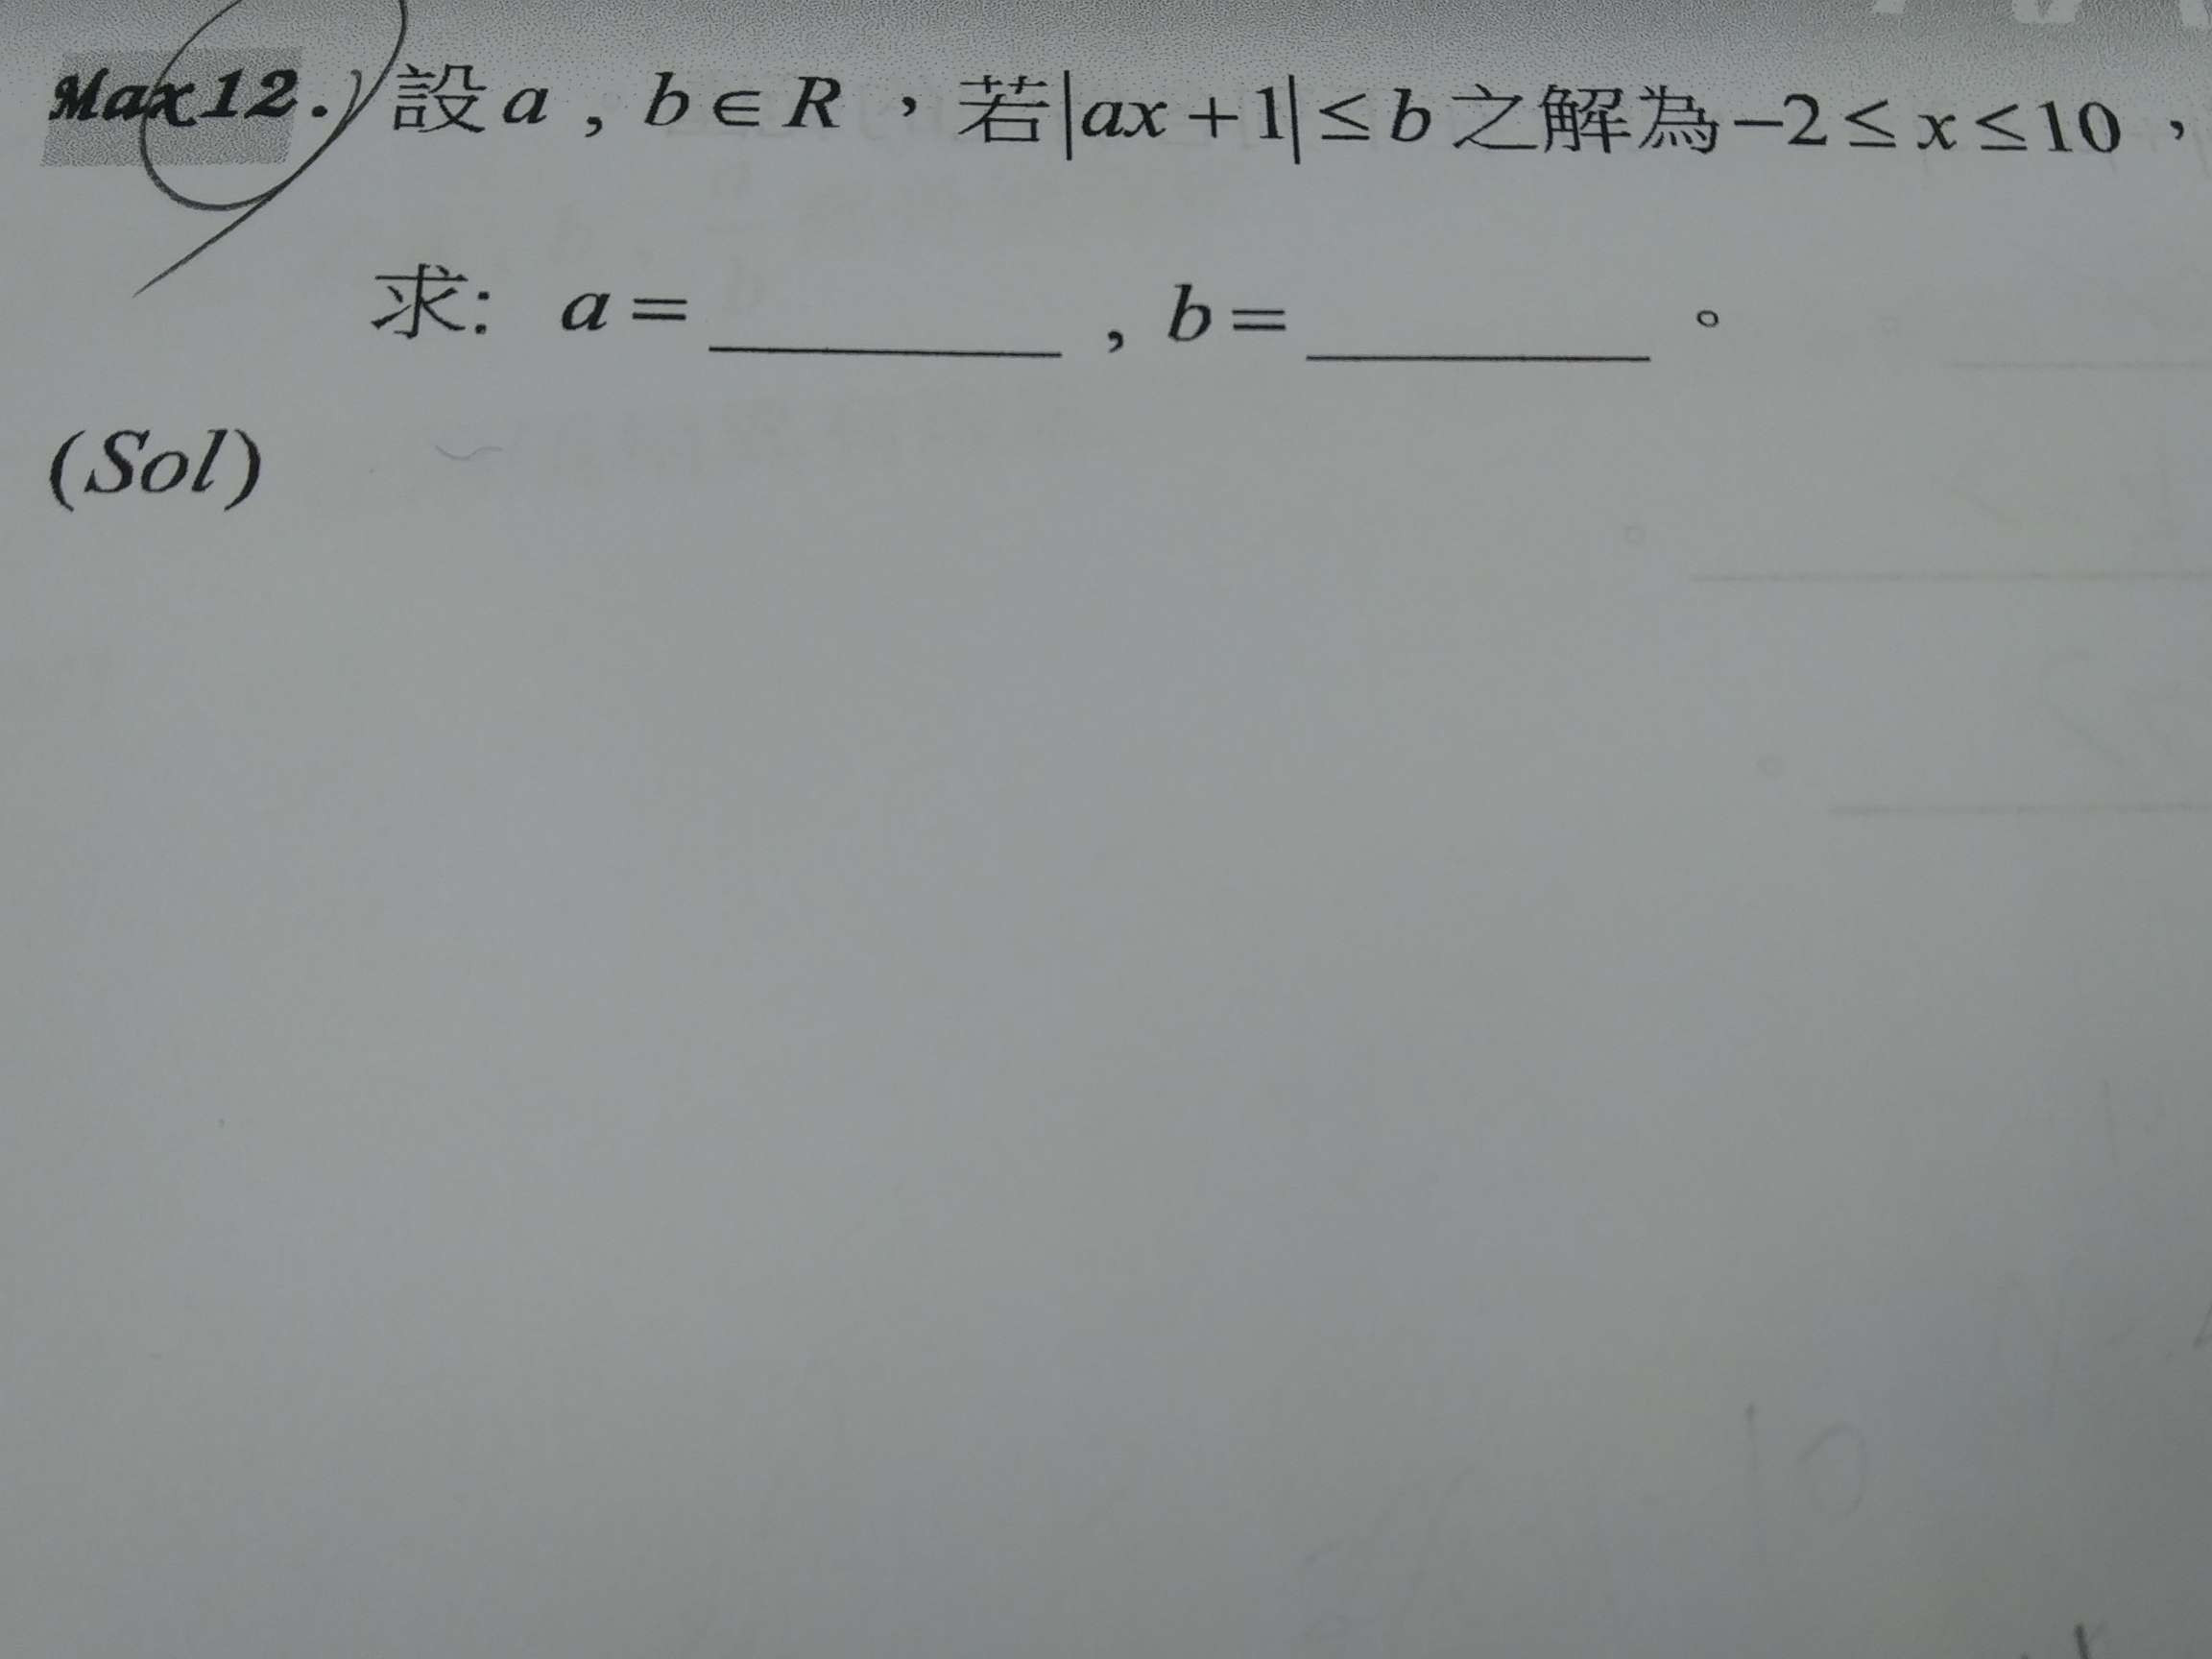 Max12. 設a , b∈R ，若|ax+1|≤b之解為−2≤x≤10，
求: a=______ , b=______ 。
(Sol)